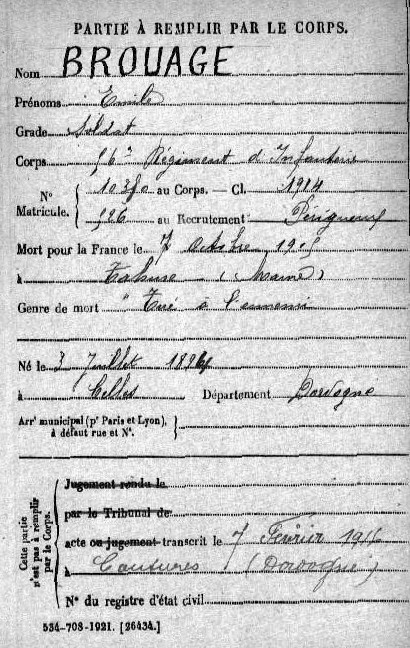 PARTIE À REMPLIR PAR LE CORPS.
Nom BROUAGE
Prénoms Emile
Grade Soldat
Corps 56e Régiment d'Infanterie
N° Matricule. { 10380 au Corps. — Cl. 1914
526 au Recrutement Périgueux
Mort pour la France le 7 octobre 1915
à Tahure (Marne)
Genre de mort " Tué à l'ennemi
Né le 3 Juillet 1894
à Celles Département Dordogne
Arrt municipal (pr Paris et Lyon), à défaut rue et N°. }
Cette partie n'est pas à remplir par le Corps.
Jugement rendu le
par le Tribunal de
acte ou jugement transcrit le 7 Février 1916
à Coutures (Dordogne)
N° du registre d'état civil
534-708-1921. [26434.]